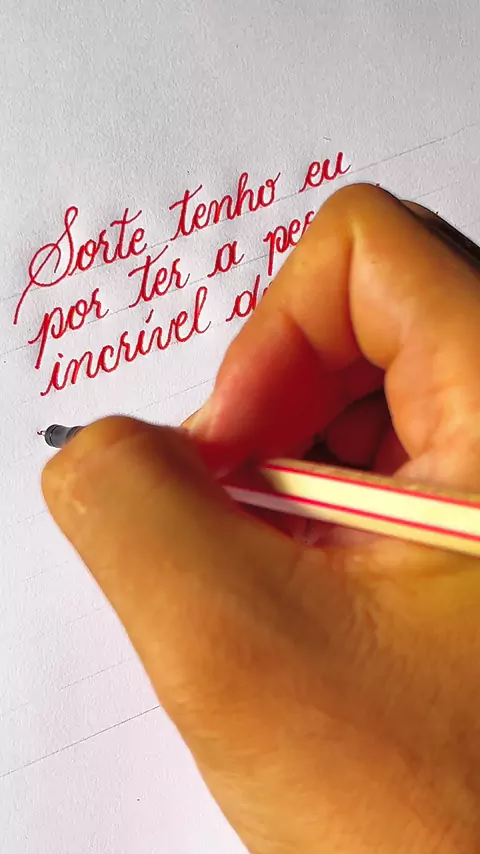 Sorte tenho eu
por ter a
incrível